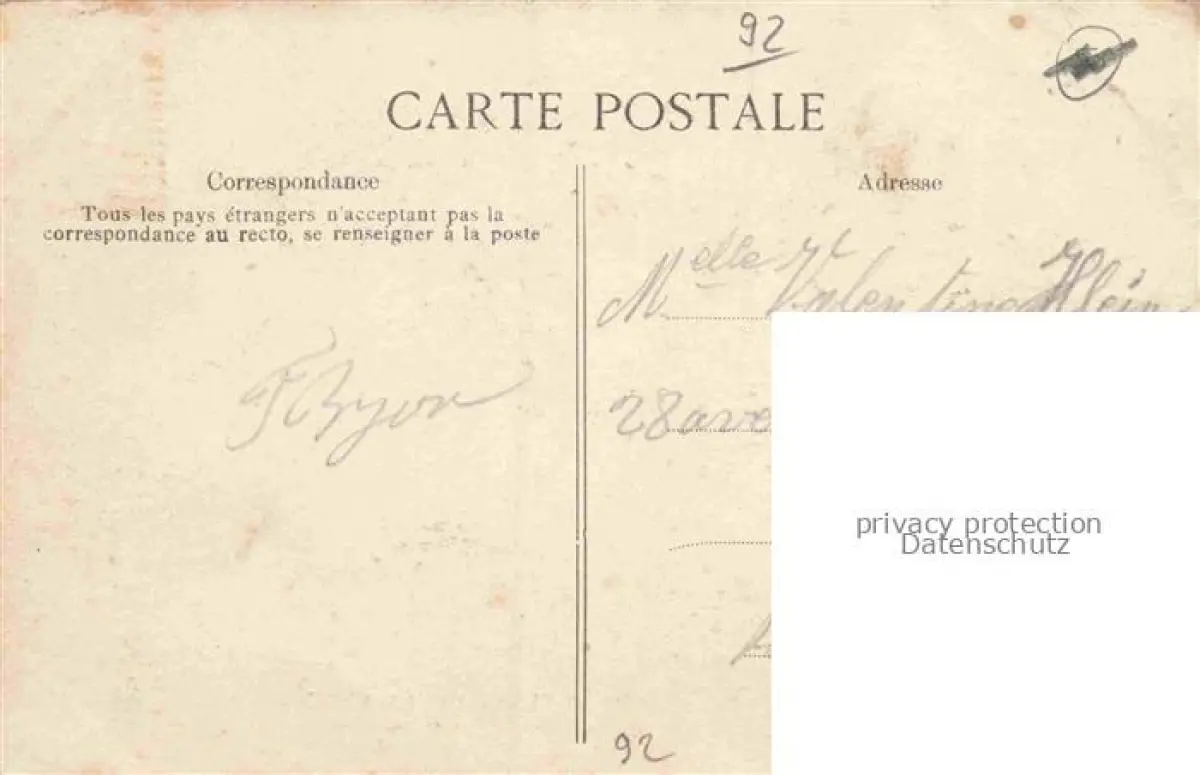 92
CARTE POSTALE
Correspondance
Tous les pays étrangers n'acceptant pas la
correspondance au recto, se renseigner à la poste
Adresse
Melle Valentine
28 ave
privacy protection
Datenschutz
92